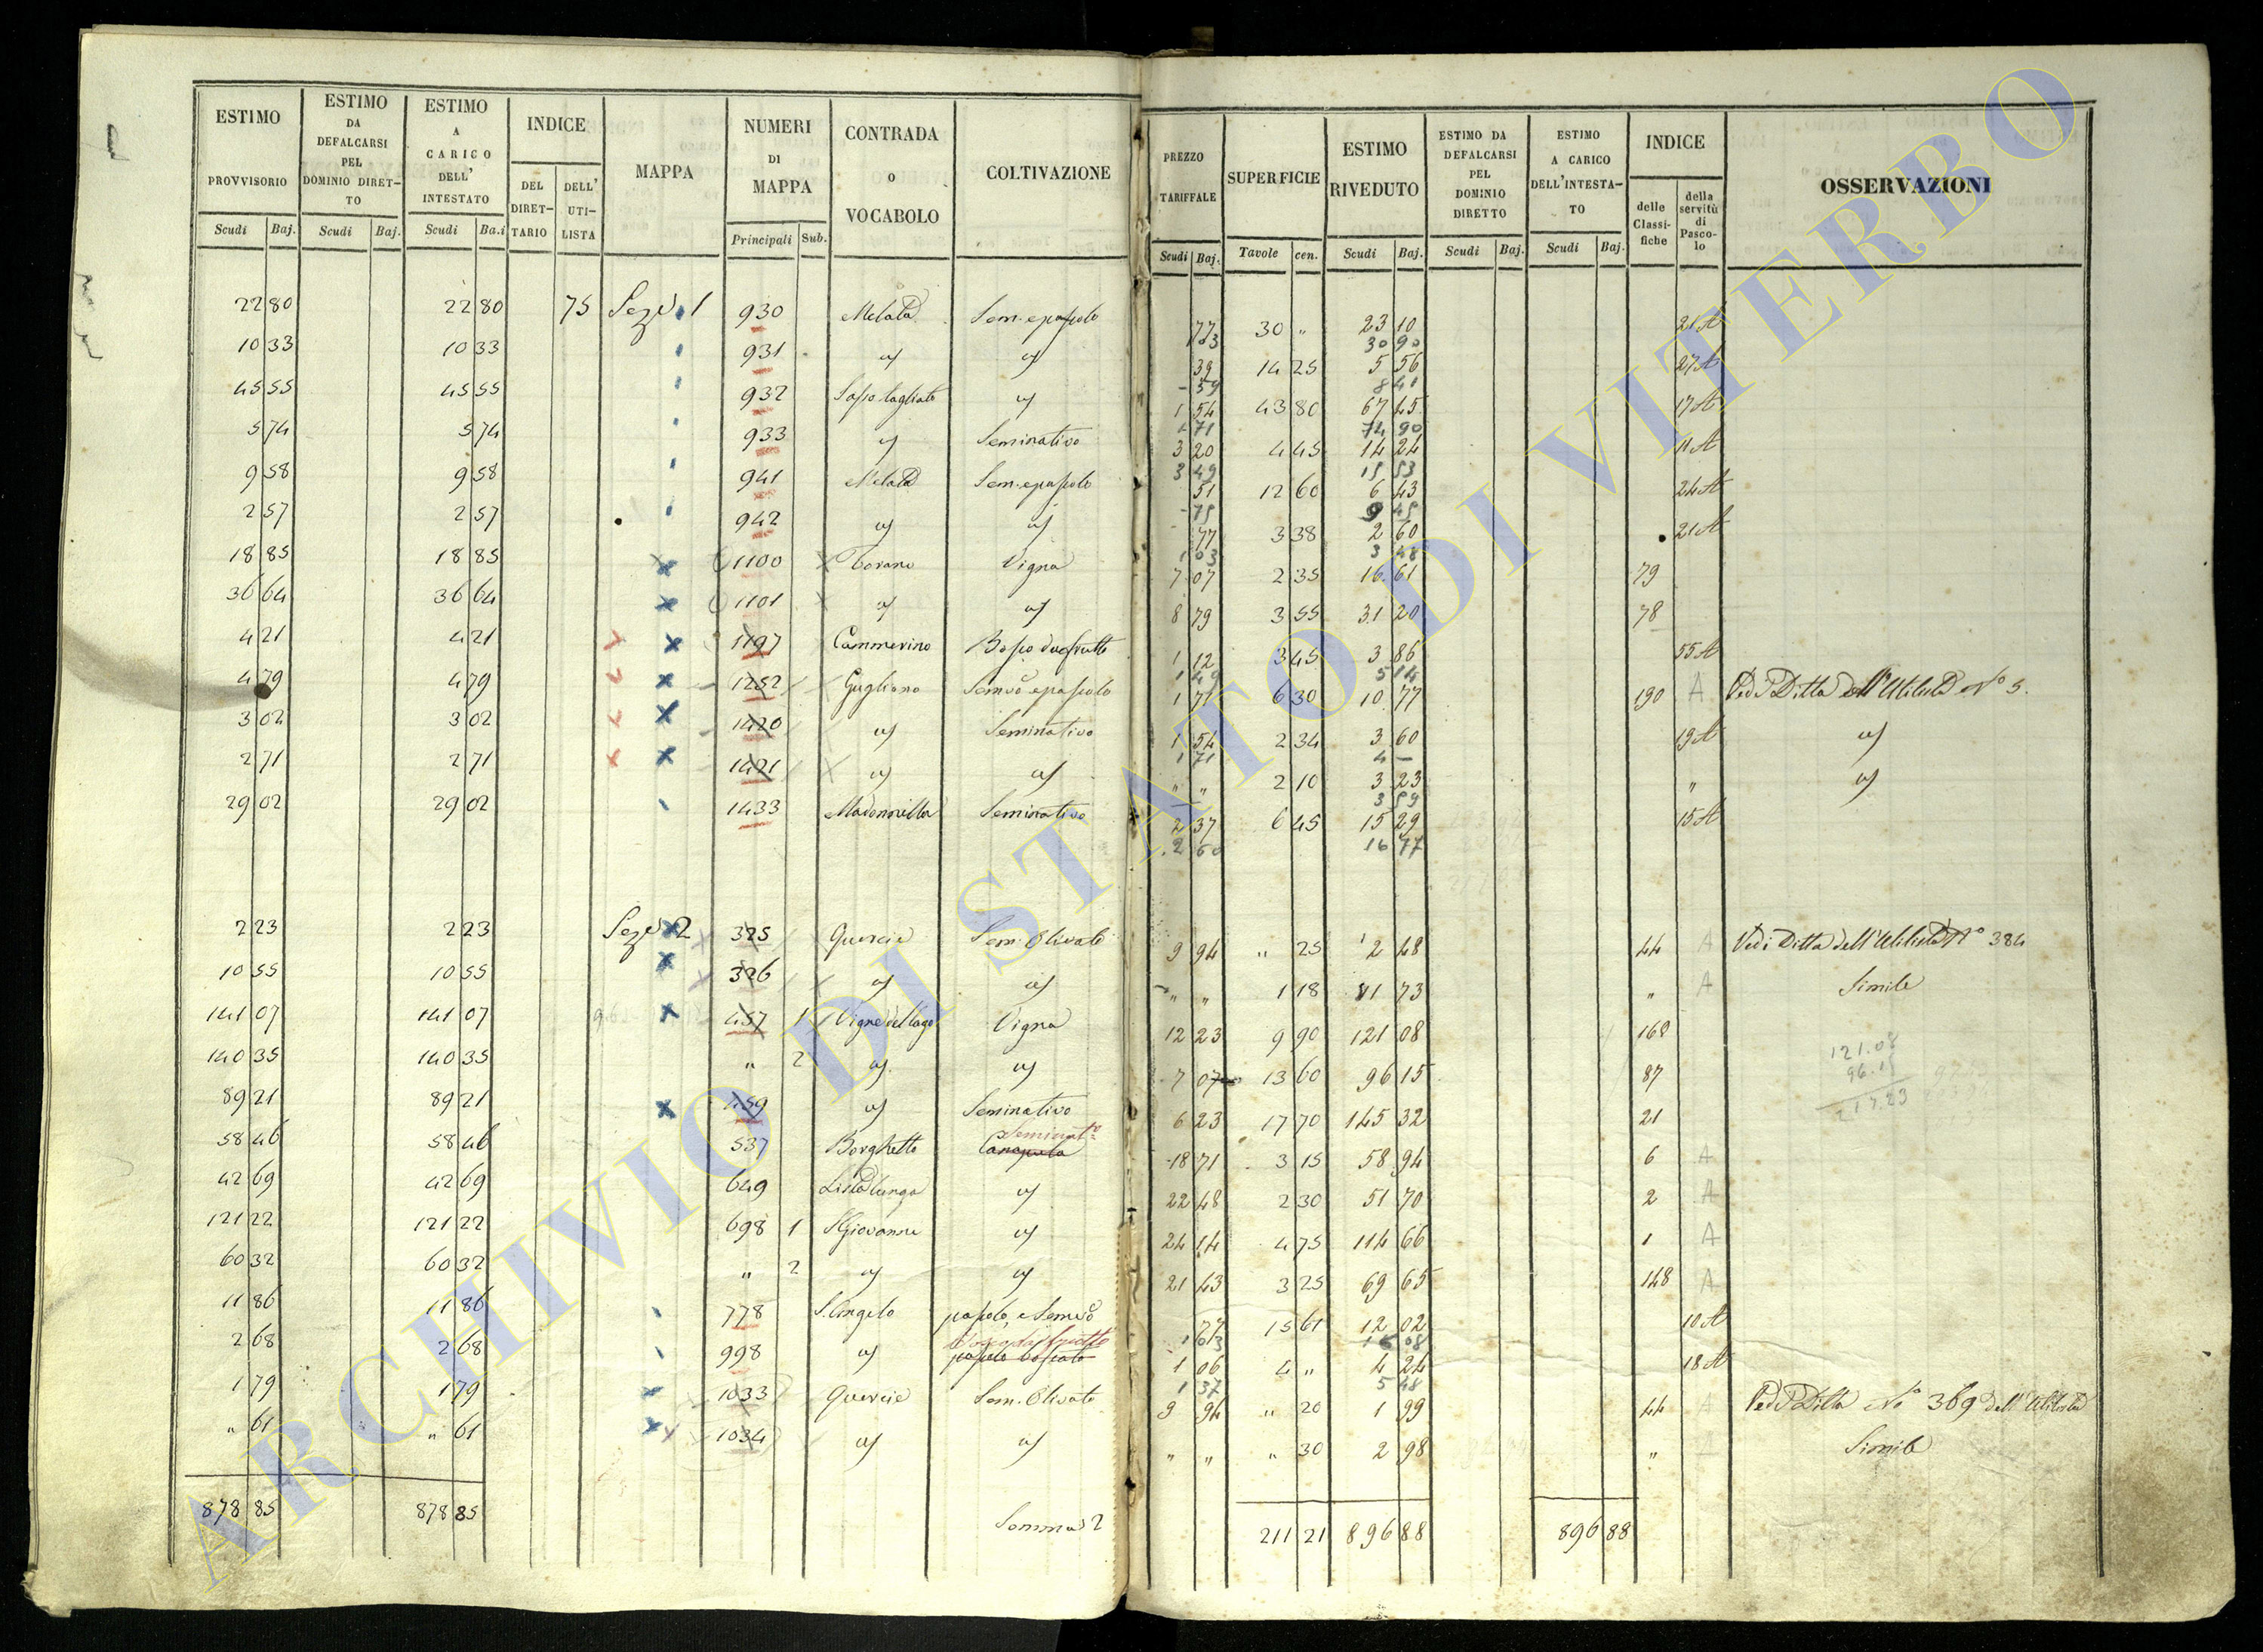 ESTIMO PROVVISORIO | ESTIMO DA DEFALCARSI PEL DOMINIO DIRET-TO | ESTIMO A CARICO DELL' INTESTATO | INDICE | MAPPA | NUMERI DI MAPPA | CONTRADA O VOCABOLO | COLTIVAZIONE | PREZZO TARIFFALE | SUPERFICIE | ESTIMO RIVEDUTO | ESTIMO DA DEFALCARSI PEL DOMINIO DIRETTO | ESTIMO A CARICO DELL'INTESTA-TO | INDICE | OSSERVAZIONI
DEL DIRET-TARIO | DELL' UTI-LISTA | delle Classi-fiche | della servitù di Pasco-lo
Scudi | Baj. | Scudi | Baj. | Scudi | Ba.i | Principali | Sub. | Scudi | Baj. | Tavole | cen. | Scudi | Baj. | Scudi | Baj. | Scudi | Baj.
22 80 | 22 80 | 75 | Sez.e 1 | 930 | Melata | Sem. e pascolo | 77 | 30 " | 23 10 | 21 A
1 03 | 30 90
10 33 | 10 33 | 931 | a/ | a/ | 39 | 14 25 | 5 56 | 27 A
- 59 | 8 41
45 55 | 45 55 | 932 | Sasso tagliato | a/ | 1 54 | 43 80 | 67 45 | 17 A
1 71 | 74 90
5 74 | 5 74 | 933 | a/ | Seminativo | 3 20 | 4 45 | 14 24 | 11 A
3 49 | 15 53
9 58 | 9 58 | 941 | Melata | Sem. e pascolo | 51 | 12 60 | 6 43 | 24 A
- 75 | 9 45
2 57 | 2 57 | 942 | a/ | a/ | 77 | 3 38 | 2 60 | 21 A
1 03 | 3 48
18 85 | 18 85 | 1100 | Torano | Vigna | 7 07 | 2 35 | 16 61 | 79
36 64 | 36 64 | 1101 | a/ | a/ | 8 79 | 3 55 | 31 20 | 78
4 21 | 4 21 | 1197 | Cammerino | Bosco da frutto | 1 12 | 3 45 | 3 86 | 55 A
1 49 | 5 14
4 79 | 4 79 | 1252 | Gugliano | Semvo e pascolo | 1 71 | 6 30 | 10 77 | 190 | A | Vedi Ditta dell'Utilista No 5.
3 02 | 3 02 | 1420 | a/ | Seminativo | 1 54 | 2 34 | 3 60 | 19 A | a/
1 71 | 4 -
2 71 | 2 71 | 1421 | a/ | a/ | " " | 2 10 | 3 23 | " | a/
3 59
29 02 | 29 02 | 1433 | Madonnella | Seminativo | 2 37 | 6 45 | 15 29 | 15 A
2 60 | 16 77
2 23 | 2 23 | Sez.e 2 | 325 | Quercie | Sem. Olivato | 9 94 | " 25 | 2 48 | 44 | A | Vedi Ditta dell'Utilista No 384
10 55 | 10 55 | 326 | a/ | a/ | " " | 1 18 | 11 73 | " | A | Simile
141 07 | 141 07 | 457 | 1 | Vigne del lago | Vigna | 12 23 | 9 90 | 121 08 | 168
121.08
140 35 | 140 35 | " | 2 | a/ | a/ | 7 07 | 13 60 | 96 15 | 87
96.15
217.23
89 21 | 89 21 | 459 | a/ | Seminativo | 6 23 | 17 70 | 145 32 | 21
Seminato
58 46 | 58 46 | 537 | Borghetto | Canapula | 18 71 | 3 15 | 58 94 | 6 | A
42 69 | 42 69 | 649 | Lista lunga | a/ | 22 48 | 2 30 | 51 70 | 2 | A
121 22 | 121 22 | 698 | 1 | S. Giovanni | a/ | 24 14 | 4 75 | 114 66 | 1 | A
60 32 | 60 32 | " | 2 | a/ | a/ | 21 43 | 3 25 | 69 65 | 148 | A
11 86 | 11 86 | 778 | S. Angelo | pascolo, e Semvo | 77 | 15 61 | 12 02 | 10 A
1 03 | 16 08
2 68 | 2 68 | 998 | a/ | pascolo boscato | 1 06 | 4 " | 4 24 | 18 A
1 37 | 5 48
1 79 | 1 79 | 1033 | Quercie | Sem. Olivato | 9 94 | " 20 | 1 99 | 44 | A | Vedi Ditta No 369 dell'Utilista
" 61 | " 61 | 1034 | a/ | a/ | " " | " 30 | 2 98 | " | A | Simile
878 85 | 878 85 | Somma 2 | 211 21 | 896 88 | 896 88
ARCHIVIO DI STATO DI VITERBO